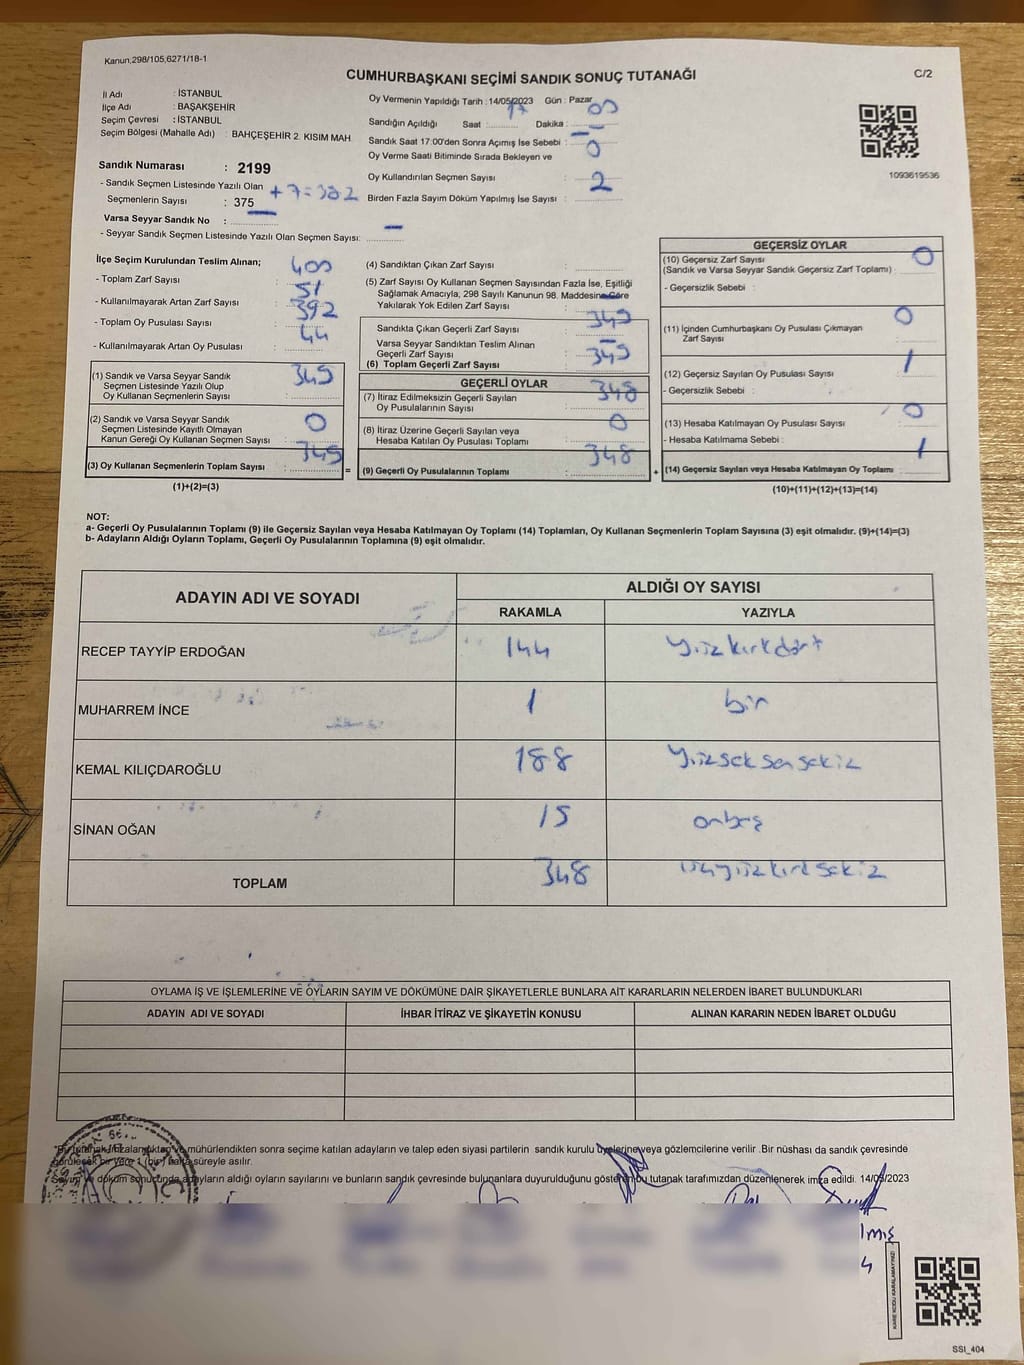 Kanun,298/105,6271/18-1
CUMHURBAŞKANI SEÇİMİ SANDIK SONUÇ TUTANAĞI
C/2
İl Adı : İSTANBUL
İlçe Adı : BAŞAKŞEHİR
Seçim Çevresi : İSTANBUL
Seçim Bölgesi (Mahalle Adı) : BAHÇEŞEHİR 2. KISIM MAH.
Oy Vermenin Yapıldığı Tarih : 14/05/2023 Gün : Pazar
Sandığın Açıldığı Saat : 17 Dakika : 00
Sandık Saat 17:00'den Sonra Açımış İse Sebebi : -
Oy Verme Saati Bitiminde Sırada Bekleyen ve
Oy Kullandırılan Seçmen Sayısı : 0
Birden Fazla Sayım Döküm Yapılmış İse Sayısı : 2
1093619536
Sandık Numarası : 2199
- Sandık Seçmen Listesinde Yazılı Olan
Seçmenlerin Sayısı : 375 +7=382
Varsa Seyyar Sandık No : -
- Seyyar Sandık Seçmen Listesinde Yazılı Olan Seçmen Sayısı: -
İlçe Seçim Kurulundan Teslim Alınan;
- Toplam Zarf Sayısı : 400
- Kullanılmayarak Artan Zarf Sayısı : 51
- Toplam Oy Pusulası Sayısı : 392
- Kullanılmayarak Artan Oy Pusulası : 44
(1) Sandık ve Varsa Seyyar Sandık
Seçmen Listesinde Yazılı Olup
Oy Kullanan Seçmenlerin Sayısı : 349
(2) Sandık ve Varsa Seyyar Sandık
Seçmen Listesinde Kayıtlı Olmayan
Kanun Gereği Oy Kullanan Seçmen Sayısı : 0
(3) Oy Kullanan Seçmenlerin Toplam Sayısı : 349 =
(1)+(2)=(3)
(4) Sandıktan Çıkan Zarf Sayısı :
(5) Zarf Sayısı Oy Kullanan Seçmen Sayısından Fazla İse, Eşitliği
Sağlamak Amacıyla; 298 Sayılı Kanunun 98. Maddesine Göre
Yakılarak Yok Edilen Zarf Sayısı : -
Sandıkta Çıkan Geçerli Zarf Sayısı : 349
Varsa Seyyar Sandıktan Teslim Alınan
Geçerli Zarf Sayısı : -
(6) Toplam Geçerli Zarf Sayısı : 349
GEÇERLİ OYLAR
(7) İtiraz Edilmeksizin Geçerli Sayılan
Oy Pusulalarının Sayısı : 348
(8) İtiraz Üzerine Geçerli Sayılan veya
Hesaba Katılan Oy Pusulası Toplamı : 0
(9) Geçerli Oy Pusulalarının Toplamı : 348 +
GEÇERSİZ OYLAR
(10) Geçersiz Zarf Sayısı
(Sandık ve Varsa Seyyar Sandık Geçersiz Zarf Toplamı) : 0
- Geçersizlik Sebebi :
(11) İçinden Cumhurbaşkanı Oy Pusulası Çıkmayan
Zarf Sayısı : 0
(12) Geçersiz Sayılan Oy Pusulası Sayısı : 1
- Geçersizlik Sebebi :
(13) Hesaba Katılmayan Oy Pusulası Sayısı : 0
- Hesaba Katılmama Sebebi :
(14) Geçersiz Sayılan veya Hesaba Katılmayan Oy Toplamı : 1
(10)+(11)+(12)+(13)=(14)
NOT:
a- Geçerli Oy Pusulalarının Toplamı (9) ile Geçersiz Sayılan veya Hesaba Katılmayan Oy Toplamı (14) Toplamları, Oy Kullanan Seçmenlerin Toplam Sayısına (3) eşit olmalıdır. (9)+(14)=(3)
b- Adayların Aldığı Oyların Toplamı, Geçerli Oy Pusulalarının Toplamına (9) eşit olmalıdır.
ADAYIN ADI VE SOYADI ALDIĞI OY SAYISI
RAKAMLA YAZIYLA
RECEP TAYYİP ERDOĞAN 144 Yüzkırkdört
MUHARREM İNCE 1 bir
KEMAL KILIÇDAROĞLU 188 Yüzseksensekiz
SİNAN OĞAN 15 onbeş
TOPLAM 348 üçyüzkırksekiz
OYLAMA İŞ VE İŞLEMLERİNE VE OYLARIN SAYIM VE DÖKÜMÜNE DAİR ŞİKAYETLERLE BUNLARA AİT KARARLARIN NELERDEN İBARET BULUNDUKLARI
ADAYIN ADI VE SOYADI İHBAR İTİRAZ VE ŞİKAYETİN KONUSU ALINAN KARARIN NEDEN İBARET OLDUĞU
*Bu tutanak imzalandıktan ve mühürlendikten sonra seçime katılan adayların ve talep eden siyasi partilerin sandık kurulu üyelerine veya gözlemcilerine verilir .Bir nüshası da sandık çevresinde
görülecek bir yere 1 (bir) hafta süreyle asılır.
Sayım ve döküm sonucunda adayların aldığı oyların sayılarını ve bunların sandık çevresinde bulunanlara duyurulduğunu gösteren bu tutanak tarafımızdan düzenlenerek imza edildi. 14/05/2023
KARE KODU KARALAMAYINIZ!
SSI_404